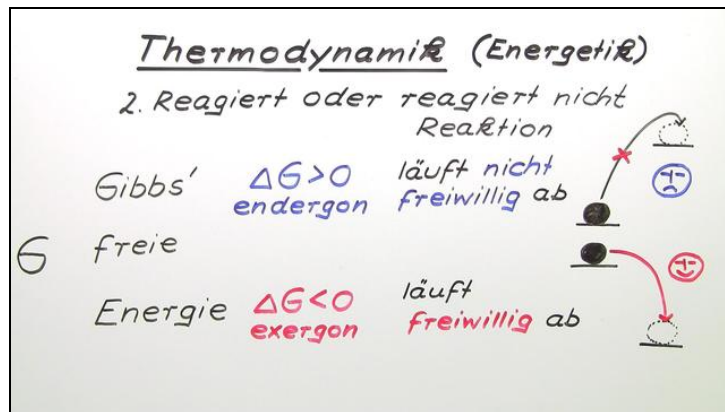 Thermodynamik (Energetik)
2. Reagiert oder reagiert nicht
Reaktion
Gibbs' ΔG>0 läuft nicht
endergon freiwillig ab
G freie
Energie ΔG<0 läuft
exergon freiwillig ab